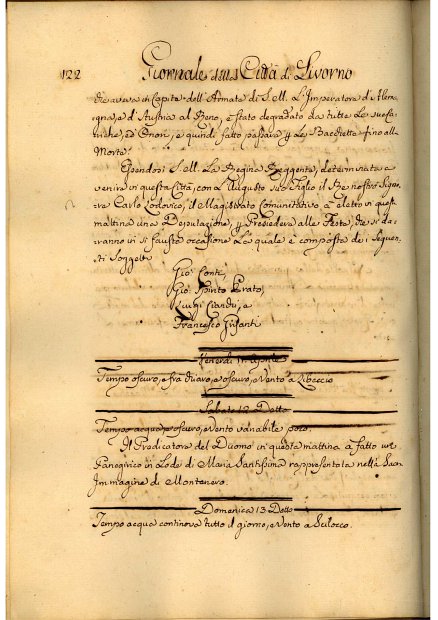 122 Giornale della Città di Livorno
che aveva in Capite dell'Armate di S.M. L'Imperatore d'Alema
gna, e d'Austria al Reno, è stato degradato da tutte Le sue Ca
riche, ed Onori, e quindi fatto passare p Le Bacchette fino alla
Morte.
Essendosi S.M. La Regina Reggente, determinata a
venire in questa Città, con L'Augusto suo Figlio il Re nostro Signo
re Carlo Lodovico, il Magistrato Comunitativo à eletto in questa
mattina una Deputazione, p Presiedere alle Feste, che si da
ranno in si fausta occasione La quale è composta de i Seguen
ti Soggetti
Gio: Conti,
Gio: Prato,
Luigi e
Francesco
Venerdi 11 Aprile
Tempo oscuro, e fra chiaro, e oscuro, e Vento a Libeccio
Sabato 12 Detto
Tempo acqua, e oscuro, e Vento variabile poco.
Il Predicatore del Duomo in questa mattina à fatto un
Panegirico in Lode di Maria Santissima rappresentata nella Sacra
Immagine di Montenero.
Domenica 13 Detto
Tempo acqua continova tutto il giorno, e Vento a Scilocco.